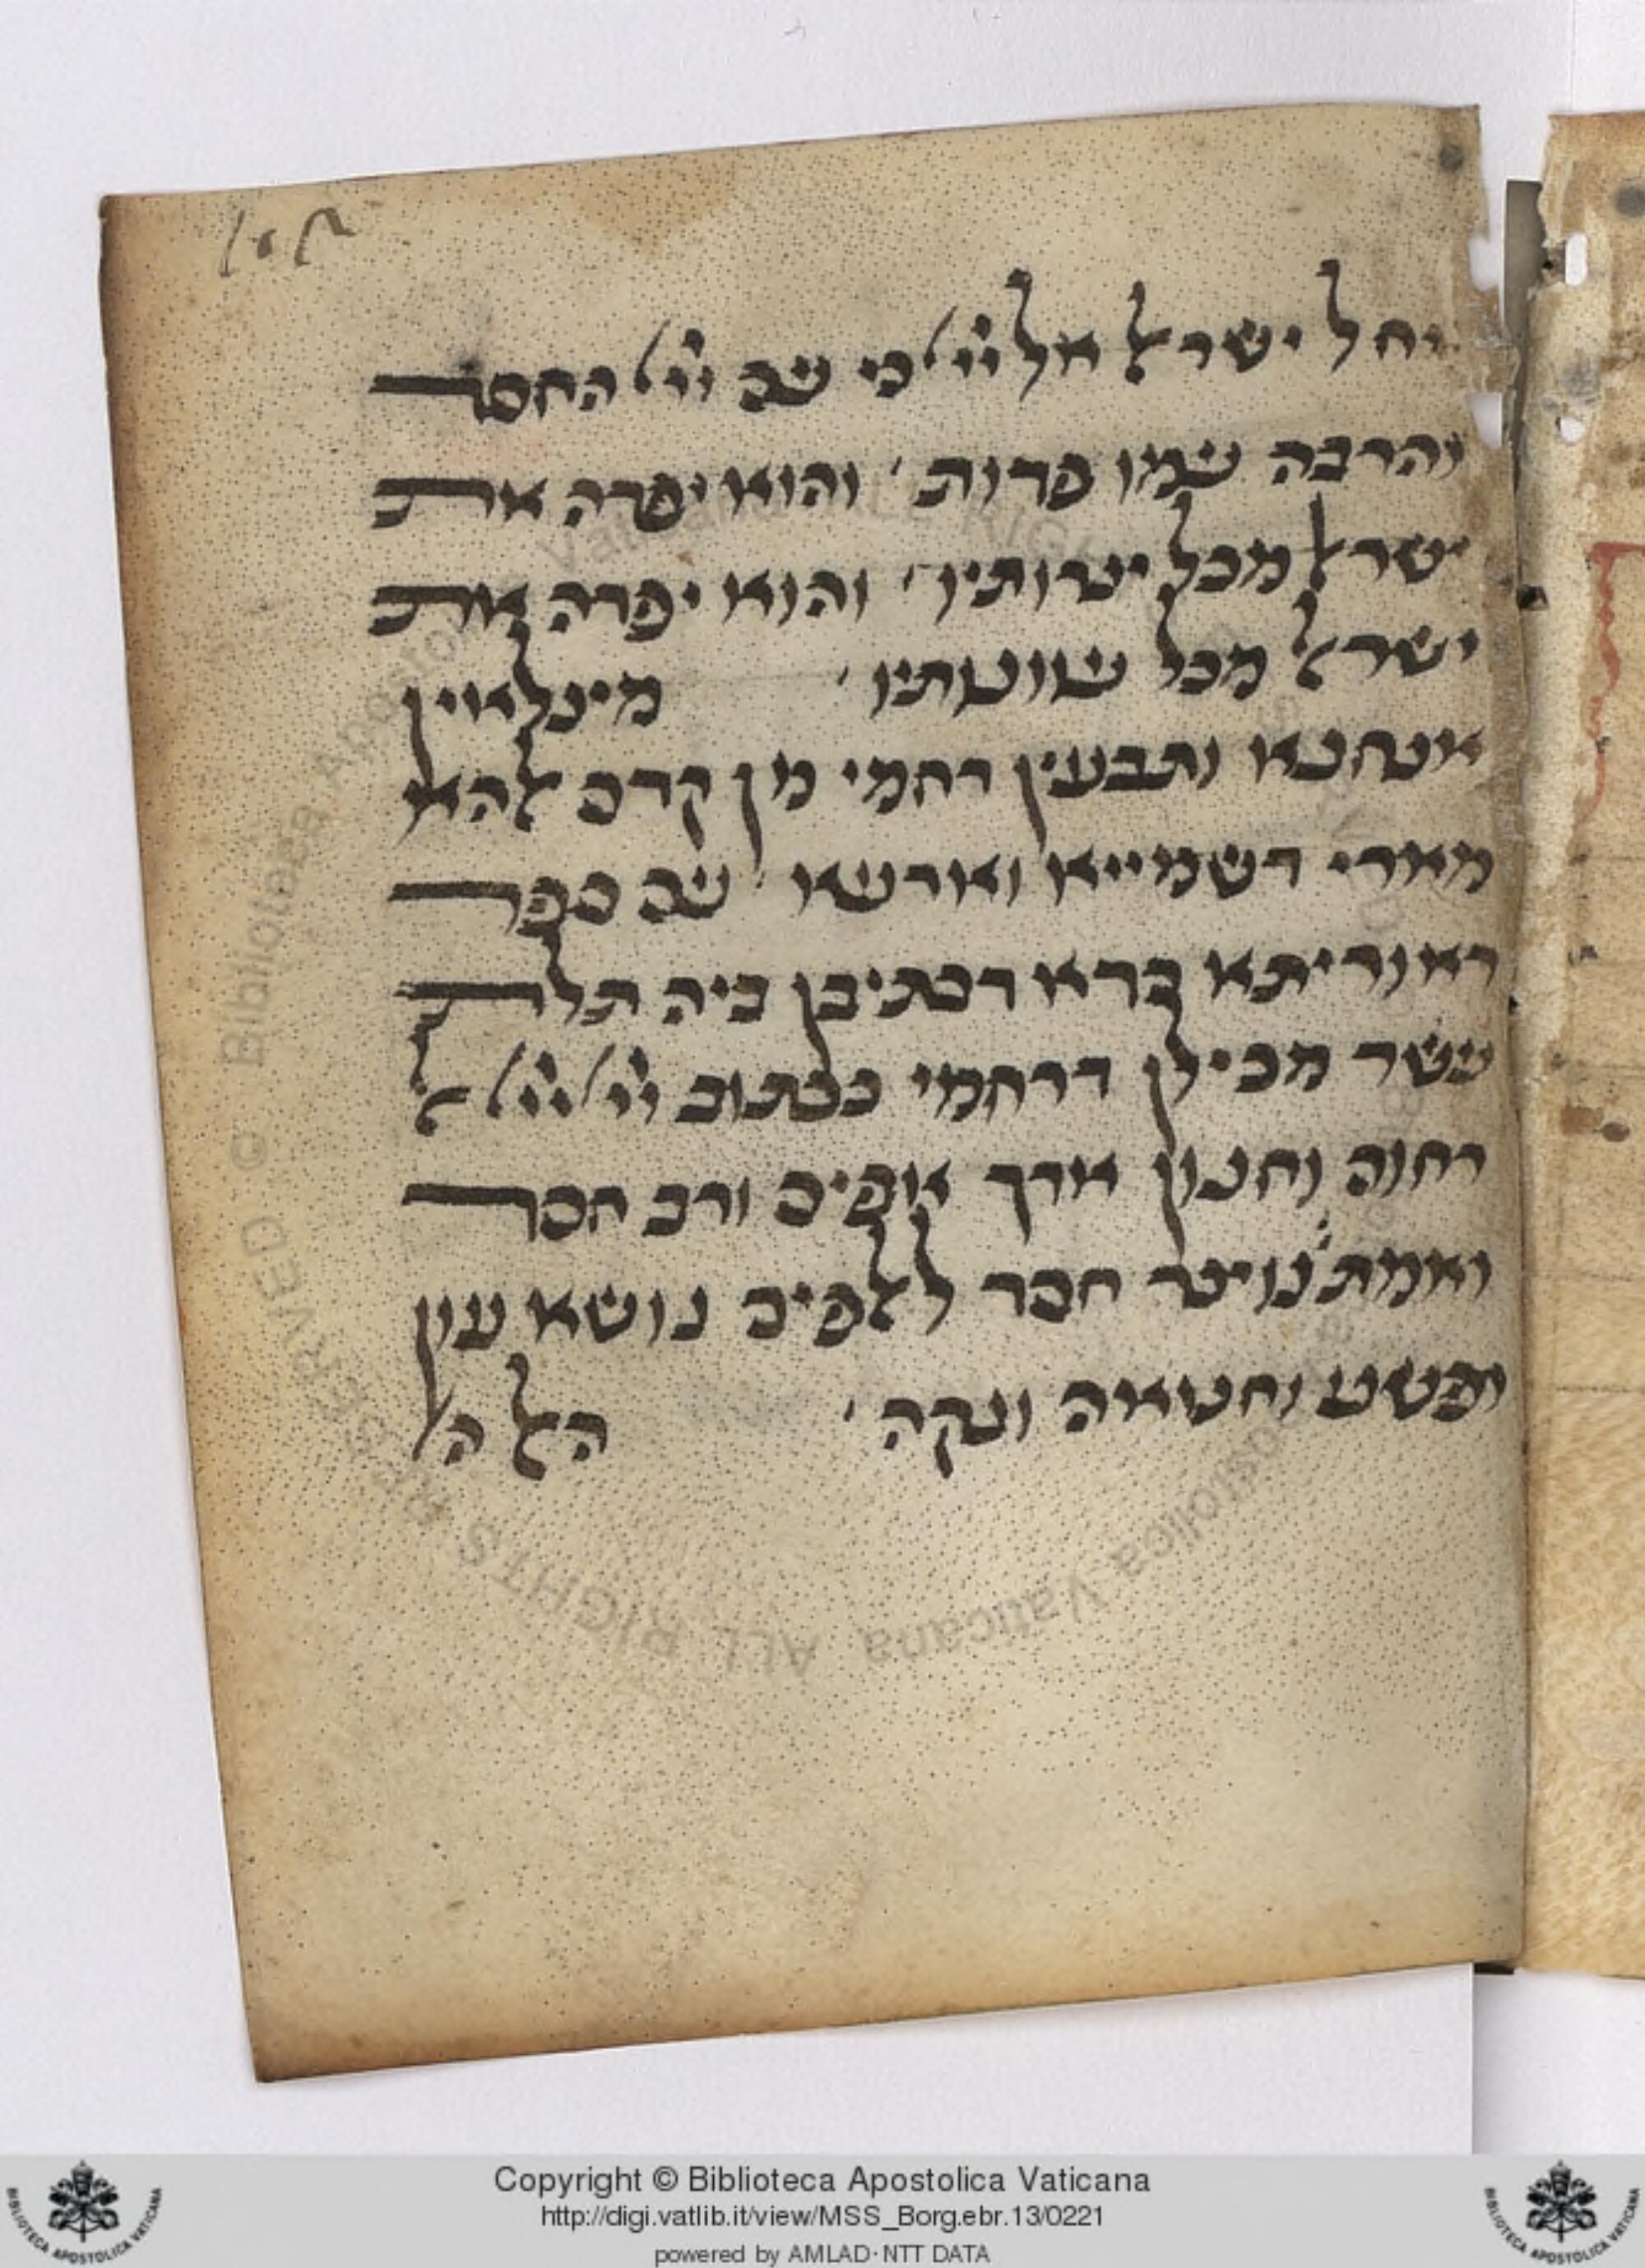 יחל ישראל אל ייי כי עם ייי החסד
והרבה עמו פדות והוא יפדה את
ישראל מכל עונותיו והוא יפדה את
ישראל מכל עונותיו מצלאין
אנחנא ותבעין רחמי מן קדם להא
מארי דשמייא וארעא עם ספר
דאוריתא דכתיבן ביה תלת
עשר מכילן דרחמי ככתוב ייי ייי אל
רחום וחנון ארך אפים ורב חסד
ואמת נוצר חסד לאלפים נושא עון
ופשע וחטאה ונקה האל ה
Copyright © Biblioteca Apostolica Vaticana
http://digi.vatlib.it/view/MSS_Borg.ebr.13/0221
powered by AMLAD·NTT DATA